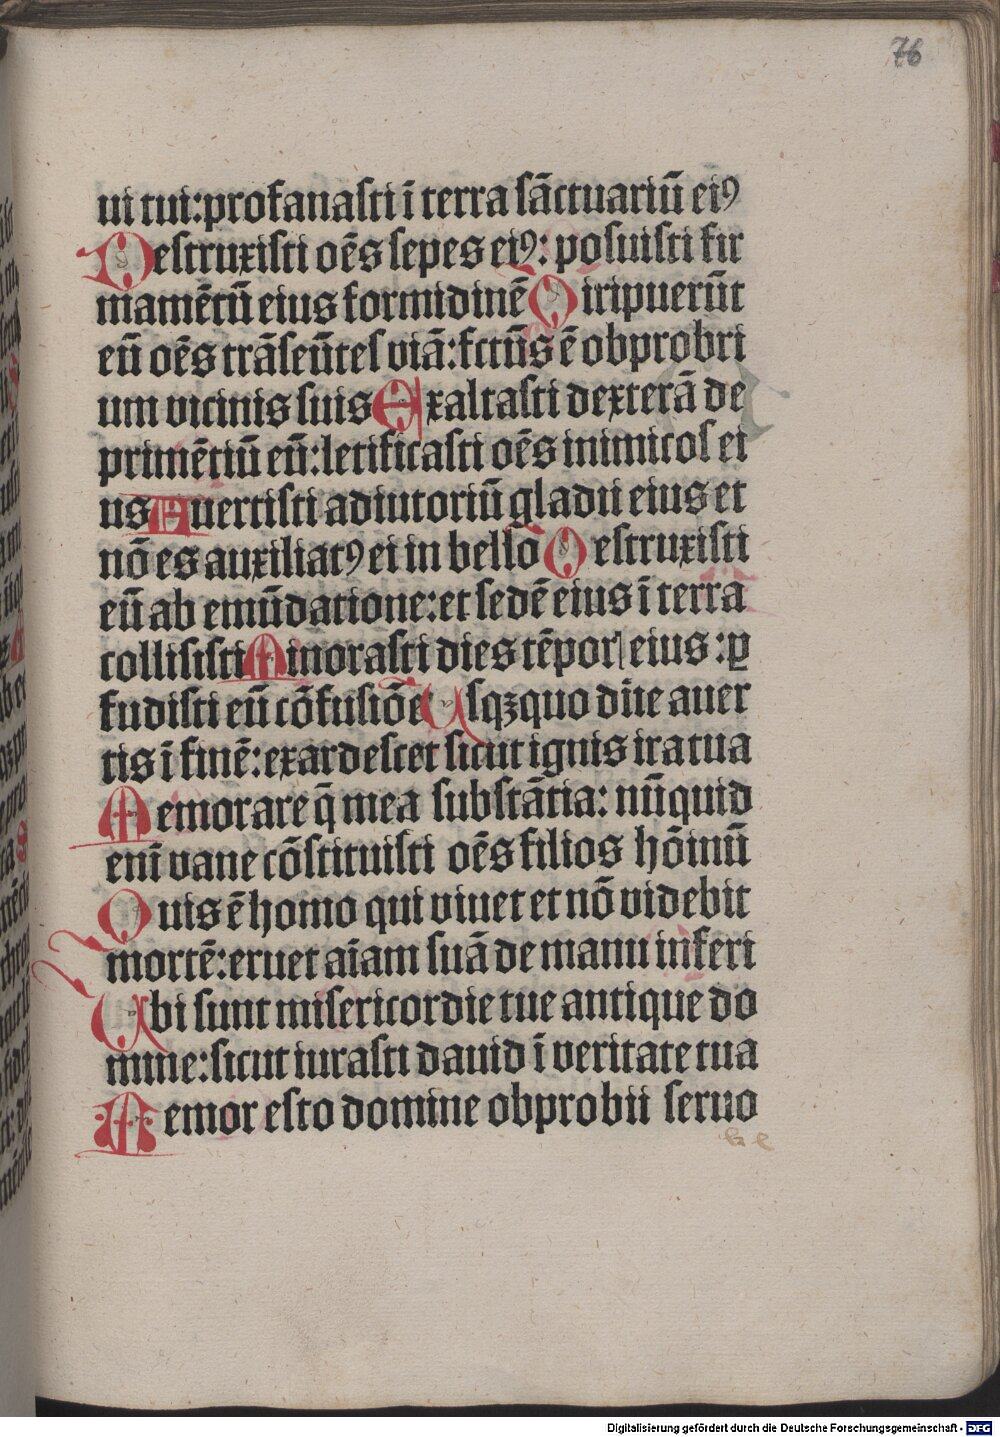 76
ui tui: profanasti ī terra sāctuariū eiꝰ
Destruxisti oēs sepes eiꝰ: posuisti fir
mamētū eius formidinē Diripuerūt
eū oēs trāseūtes viā: fctūs ē obprobri
um vicinis suis Exaltasti dexterā de
primētiū eū: letificasti oēs inimicos ei
us Auertisti adiutoriū gladii eius et
nō es auxiliatꝰ ei in bello Destruxisti
eū ab emūdatione: et sedē eius ī terra
collisisti Minorasti dies tēpoꝝ eius: ꝑ
fudisti eū cōfusiōe Usqꝫquo dn̄e auer
tis ī finē: exardescet sicut ignis ira tua
Memorare q̄ mea substātia: nūquid
enī vane cōstituisti oēs filios hōinū
Quis ē homo qui viuet et nō videbit
mortē: eruet aīam suā de manu inferi
Ubi sunt misericordie tue antique do
mine: sicut iurasti dauid ī veritate tua
Memor esto domine obprobii seruo
Digitalisierung gefördert durch die Deutsche Forschungsgemeinschaft - DFG